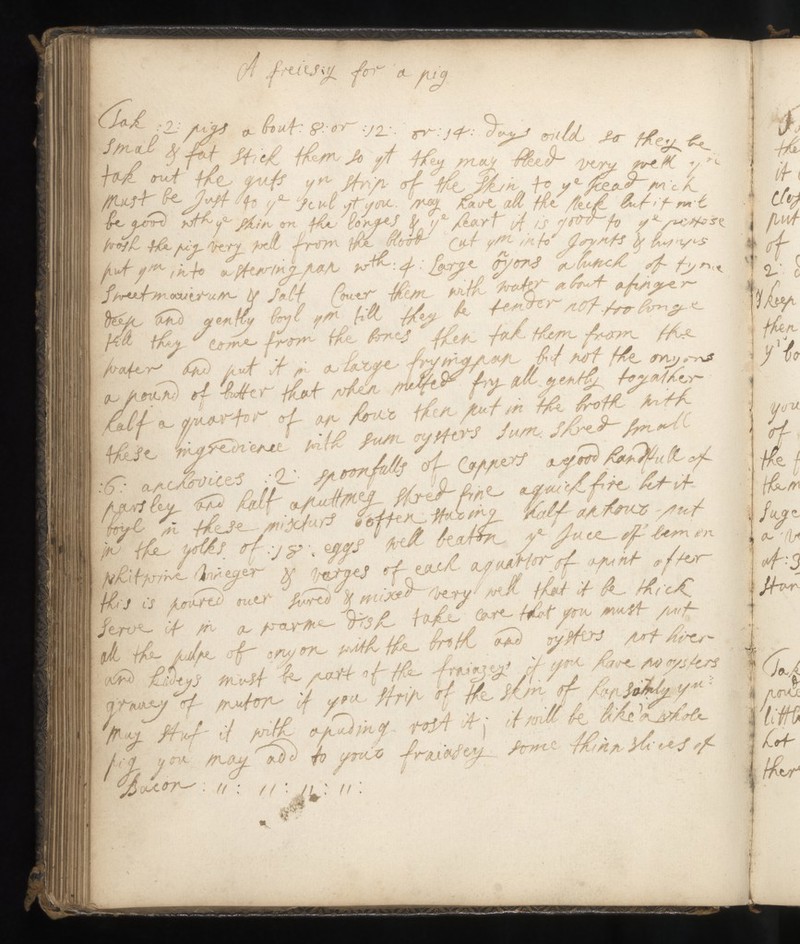 A freicsiy for a pig
Tak :2: pigs a bout: 8: or :12: or :14: days ould so they be
smal & fat stick them so yt they may bleed very well yn
tak out the guts yn strip of the skin to ye head wich
must be Just to ye scul yt you may have all the neck but it will
be good with ye skin on the longes & ye heart it is good to ye
wosh the pig very well from the blood cut ym into Joynts & lumps
put ym into a stewing pan wth :4: Large oyons a bunch of tyme
Sweet marierum & salt Cover them with water about a finger
deep and gently boyl ym till they be tender not too longe
till they come from the bones then tak them from the
water and put it in a large frying pan but not the onyons
a pound of butter that when melted fry all gently togather
half a quartor of an hour then put in the broth with
these ingredience with sum oysters sum shred small
:6: anchovices :2: spoonfulls of Cappers a good handfull of
parsley and half a nuttmeg shred fine a quick fire let it
boyl in these mixturs often staring half an hour put
in the yolks of :18: eggs well beaton ye Juce of lemon
whitwine vineger & verges of each a quartor of a pint after
this is poured over sured & mixed very well that it be thick
serve it in a warme dish take care that you must put
all the pulpe of onyon with the broth and oysters not liver
and kideys must be part of the fraiasey if you have no oysters
gravey of muton if you strip of the skin of hansomly you
may stuf it with a puding rost it; it will be like a whole
pig you may add to your fraiasey some thinn slices of
Bacon : 11 : 11 : 11 : 11 :
the
it
clos
put
of
2:
keep
then
you
of
the
them
suge
a
at :3
Tak
pound
little
hot
ther